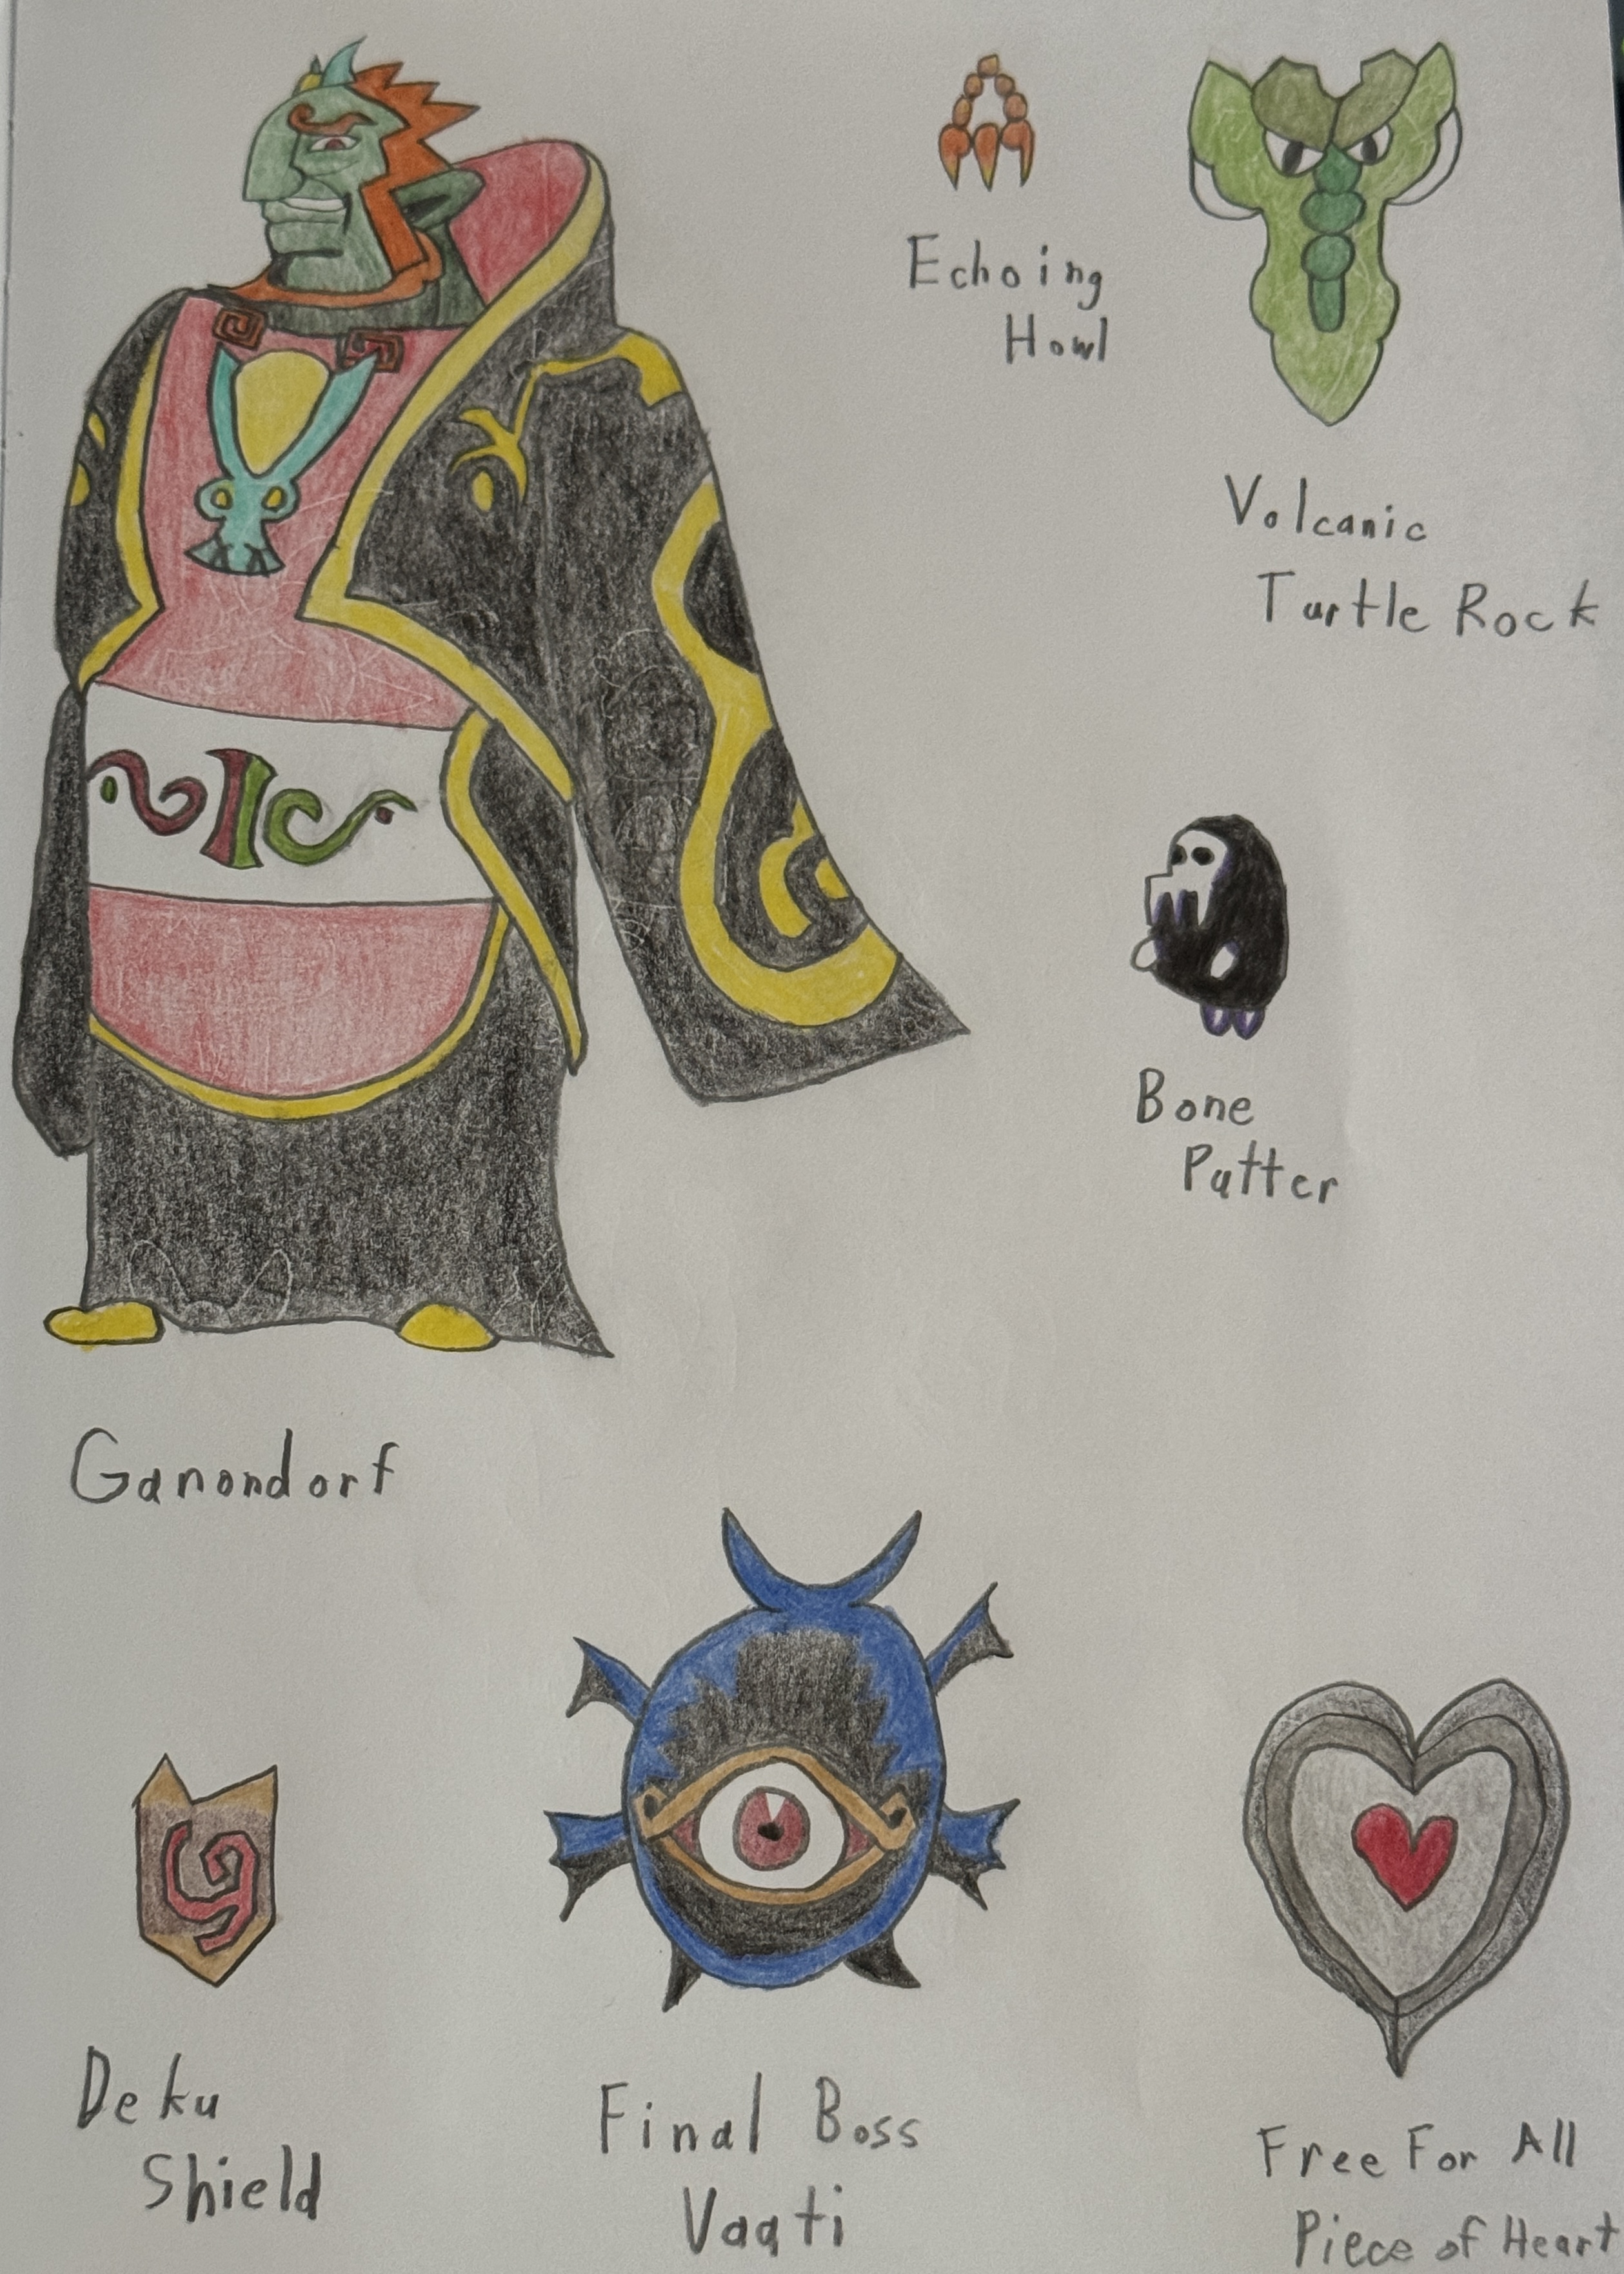 Echoing
Howl
Volcanic
Turtle Rock
Bone
Putter
Ganondorf
Deku
Shield
Final Boss
Vaati
Free For All
Piece of Heart